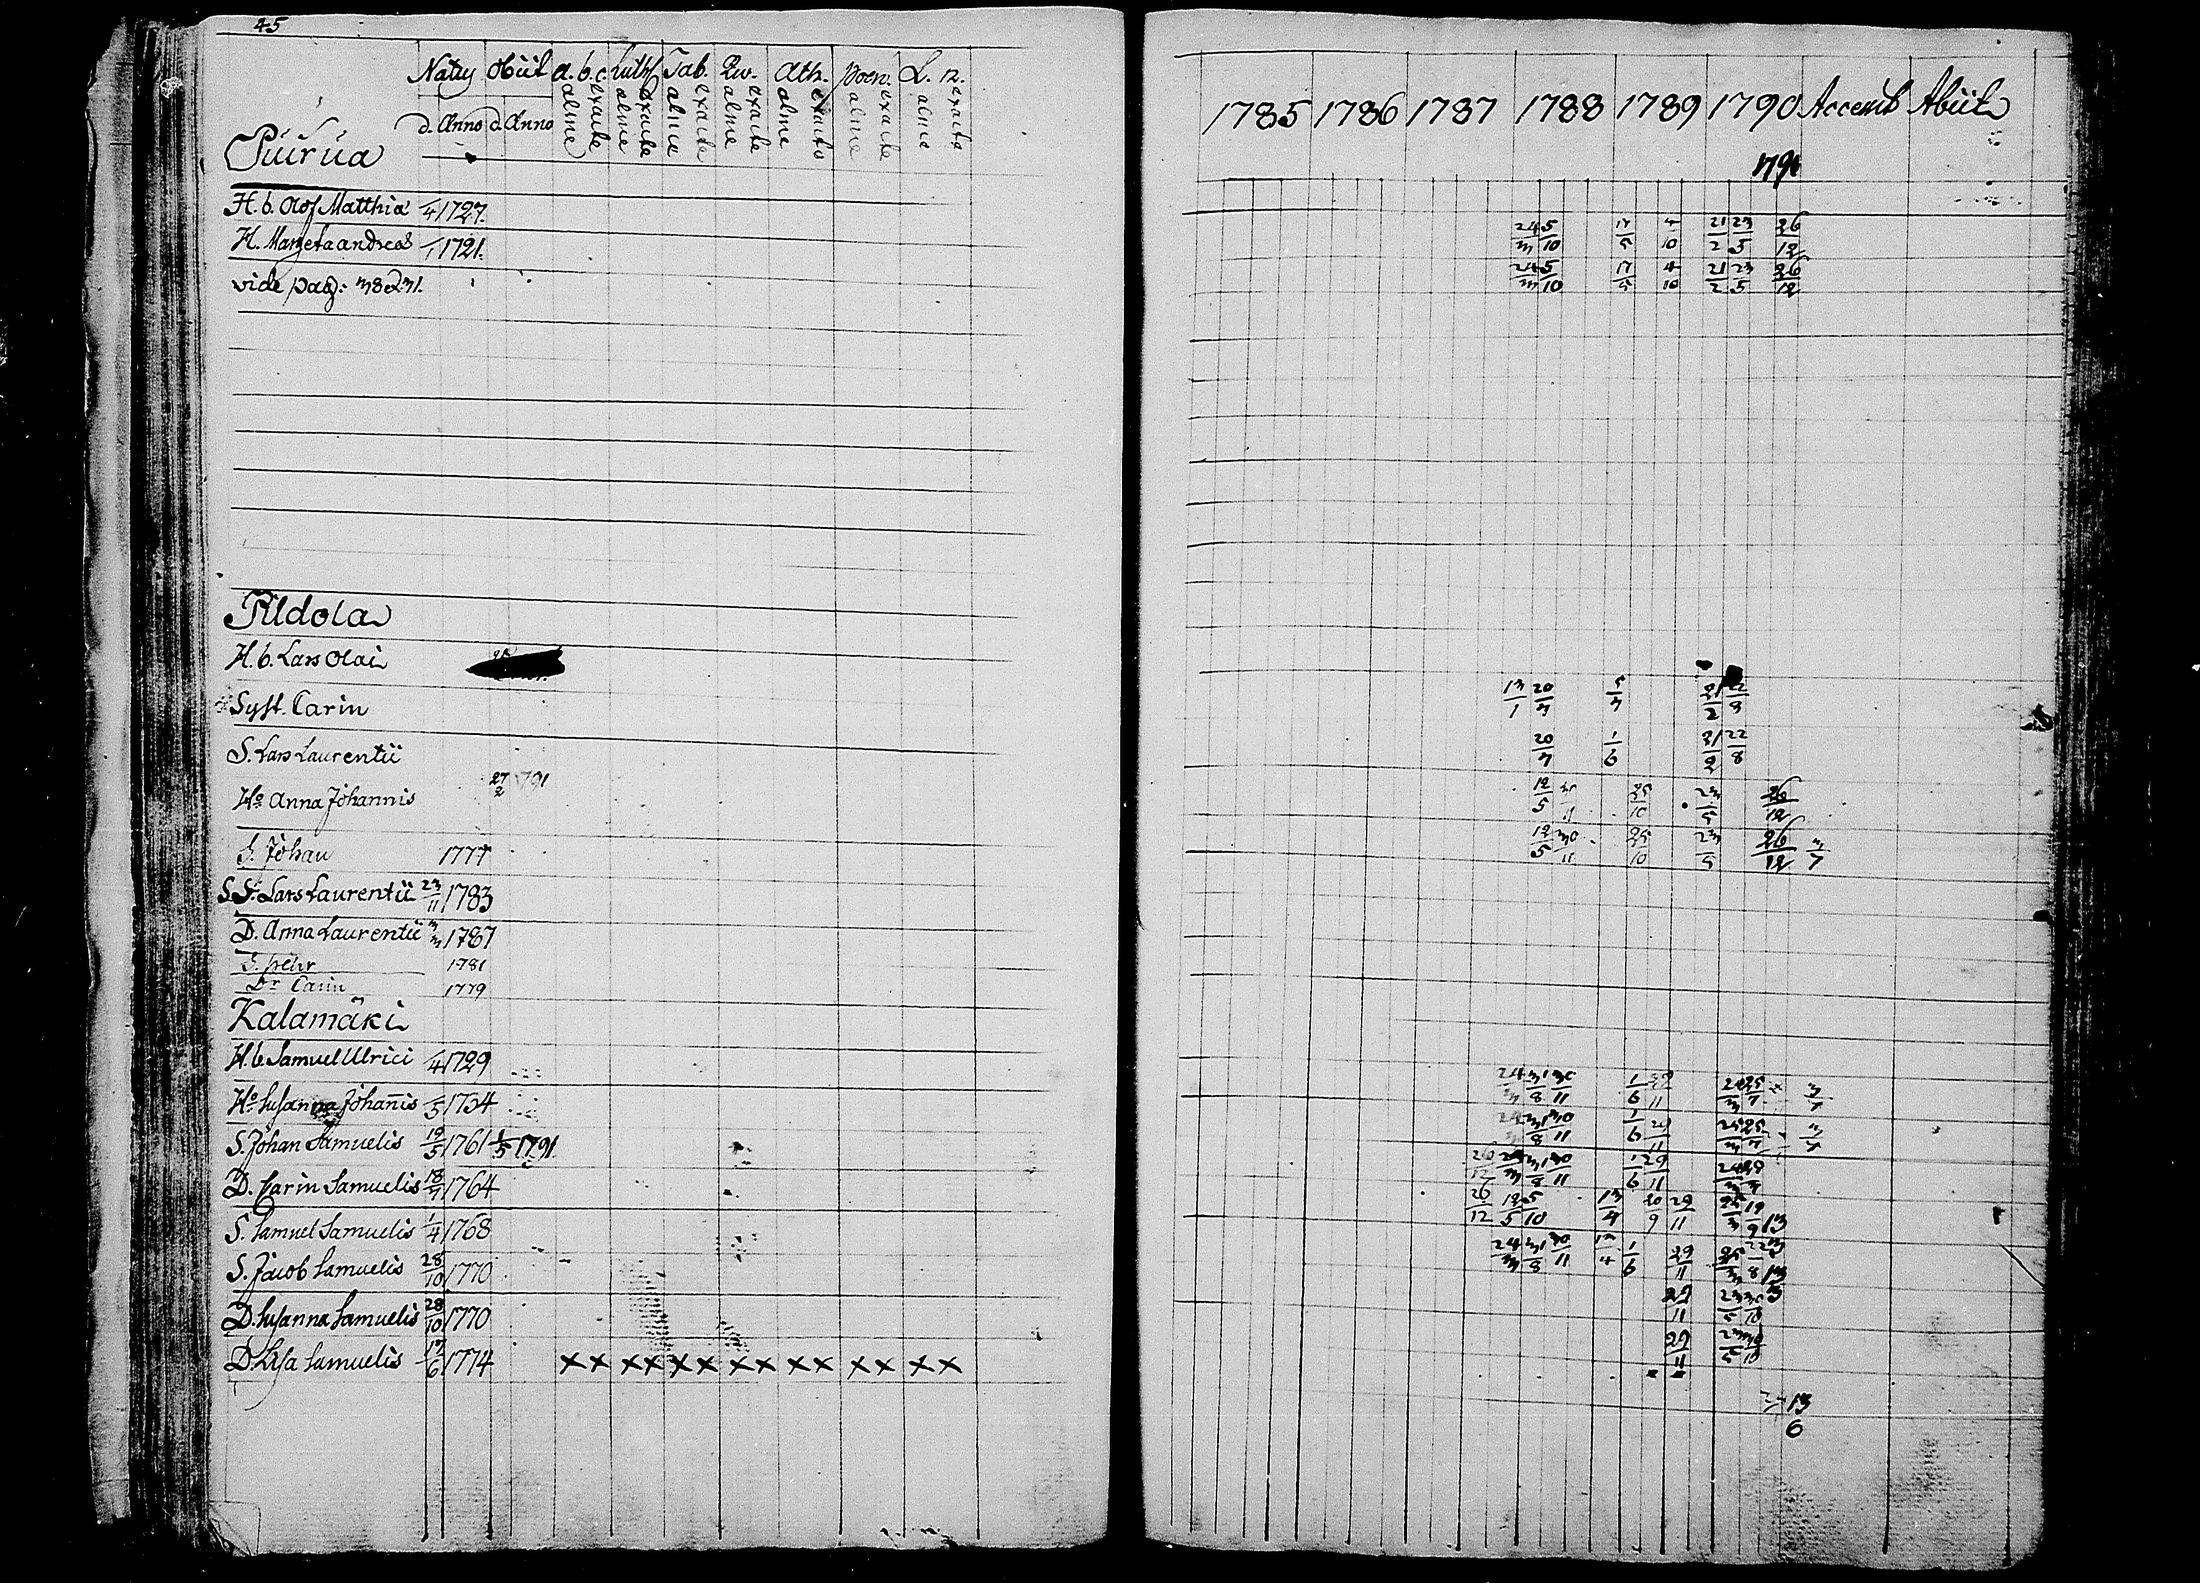 45
Natus obiit a.b.c. Luth. Tab. Qw. Ath. poen. L. 12.
d. Anno d. Anno alme exacte alme exacte alme exacte alme exacte alme exacte alme exacte alme exacte
Puirua
H. b. Olof Matthiæ /4 1727.
H. Margeta andreæ /1 1721.
vide pag: 38 231.
Pildola
H. b. Lars Olai
Syst. Carin
S. Lars Laurentii
27/2 791
Ho Anna Johannis
S. Johan 1777
S. S: Lars Laurentii 23/11 1783
D. Anna Laurentii 3/3 1787
S. pehr 1781
Dr Carin 1779
Kalamäki
H. b. Samuel Ulrici /4 1729
Ho Susanna Johannis /5 1734
S. Johan Samuelis 19/5 1761 1/5 1791.
D. Carin Samuelis 18/7 1764
S. Samuel Samuelis 1/4 1768
S. Jacob Samuelis 28/10 1770
D. Susanna Samuelis 28/10 1770
D. Lisa Samuelis 17/6 1774 x x x x x x x x x x x x x x
1785 1786 1787 1788 1789 1790 Accessit Abiit
1791
24/3 5/10 17/5 4/10 21/2 23/5 26/12
24/3 5/10 17/5 4/10 21/2 23/5 26/12
13/1 20/7 5/7 21/2
20/7 1/6 21/2 22/8
12/5 25/10 23/5 26/12
12/5 30/11 25/10 23/5 26/12 3/7
24/3 31/8 30/11 1/6 29/11 24/3 25/7 3/7
24/3 31/8 30/11 1/6 29/11 25/3 25/7
26/12 24/3 31/8 30/11 1/6 29/11
26/12 12/5 5/10 13/4 20/9 29/11 19/9 13/3
24/3 31/8 30/11 12/4 1/6 29/11 25/3 22/8 13/3
29/11 23/5 30/10
29/11 23/5 30/10
13/6